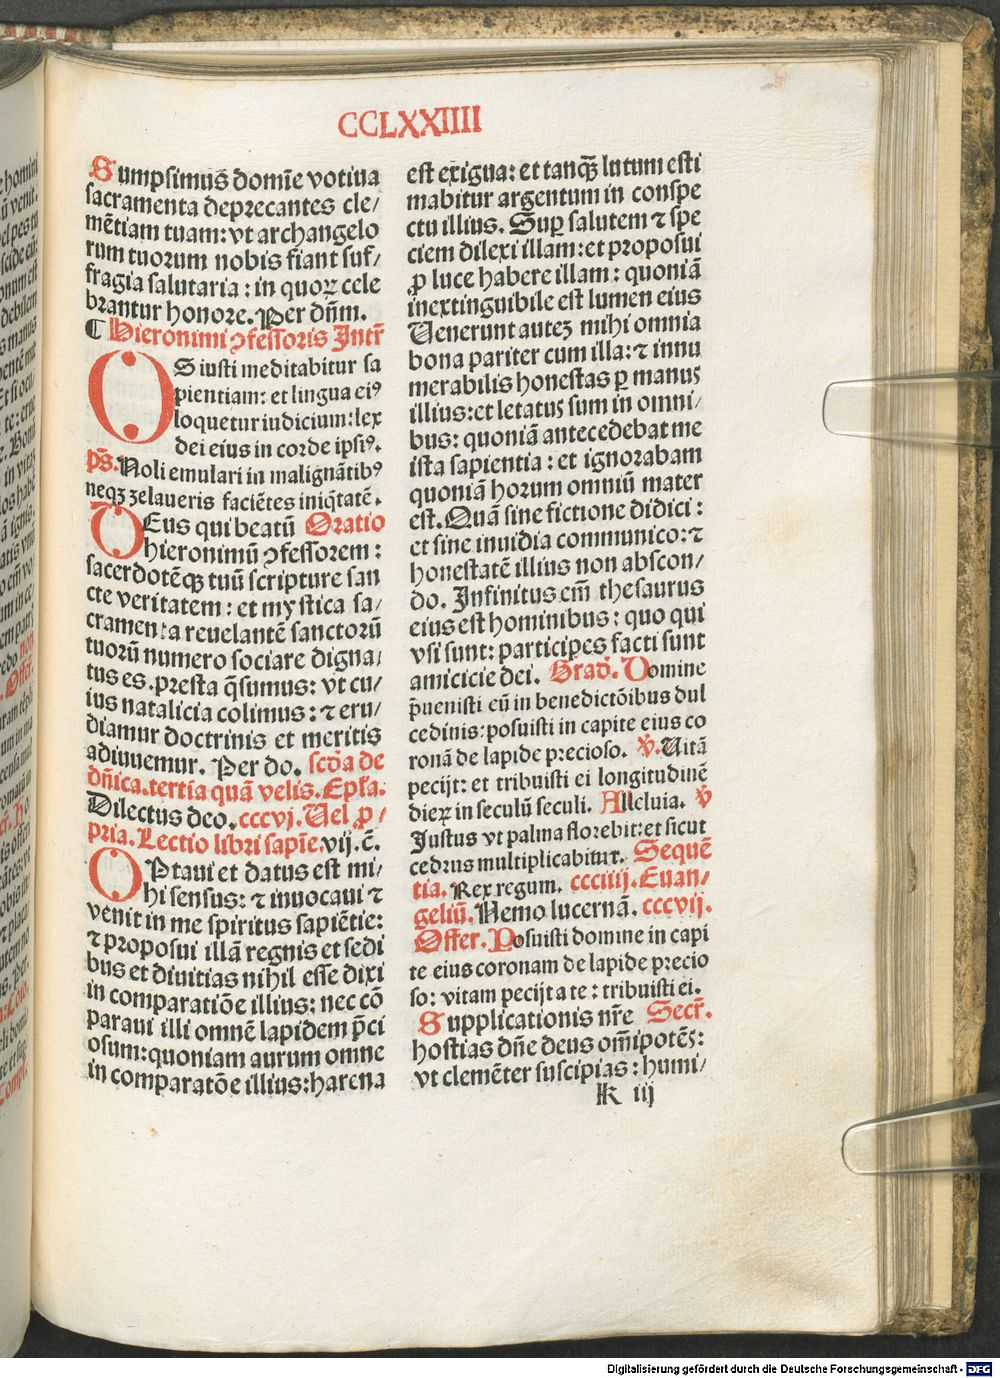 CCLXXIIII
Sumpsimus domīe votiua
sacramenta deprecantes cle/
mētiam tuam: vt archangelo
rum tuorum nobis fiant suf/
fragia salutaria: in quoꝝ cele
brantur honore. Per dn̄m.
¶ Hieronimi ꝯfessoris Intr̄
OS iusti meditabitur sa
pientiam: et lingua eiꝰ
loquetur iudicium: lex
dei eius in corde ipsiꝰ.
p̄s. Noli emulari in malignātibꝰ
neqꝫ zelaueris faciētes iniq̄tatē.
DEus qui beatū Oratio
hieronimū ꝯfessorem:
sacerdotēqꝫ tuū scripture san
cte veritatem: et mystica sa/
cramenta reuelantē sanctorū
tuorū numero sociare digna/
tus es. presta q̄sumus: vt cu/
ius natalicia colimus: ⁊ eru/
diamur doctrinis et meritis
adiuuemur. Per do. scd̄a de
dn̄ica. tertia quā velis. Epl̄a.
Dilectus deo. cccvj. Uel ꝓ/
pria. Lectio libri sapīe. vij. c̄.
OPtaui et datus est mi/
hi sensus: ⁊ inuocaui ⁊
venit in me spiritus sapiētie:
⁊ proposui illā regnis et sedi
bus et diuitias nihil esse dixi
in comparatiōe illius: nec cō
paraui illi omnē lapidem p̄ci
osum: quoniam aurum omne
in comparatōe illius: harena
est exigua: et tanqꝫ̄ lutum esti
mabitur argentum in conspe
ctu illius. Suꝑ salutem ⁊ spe
ciem dilexi illam: et proposui
ꝓ luce habere illam: quoniā
inextinguibile est lumen eius
Uenerunt auteꝫ mihi omnia
bona pariter cum illa: ⁊ innu
merabilis honestas ꝑ manus
illius: et letatus sum in omni/
bus: quoniā antecedebat me
ista sapientia: et ignorabam
quoniā horum omniū mater
est. Quā sine fictione didici:
et sine inuidia communico: ⁊
honestatē illius non abscon/
do. Infinitus em̄ thesaurus
eius est hominibus: quo qui
vsi sunt: participes facti sunt
amicicie dei. Grad. Domine
p̄uenisti eū in benedictōibus dul
cedinis: posuisti in capite eius co
ronā de lapide precioso. v̄. Uitā
pecijt: et tribuisti ei longitudinē
dieꝝ in seculū seculi. Alleluia. v̄
Justus vt palma florebit: et sicut
cedrus multiplicabitur. Sequē
tia. Rex regum. ccciiij. Euan/
geliū. Nemo lucernā. cccvij.
Offer. Posuisti domine in capi
te eius coronam de lapide precio
so: vitam pecijt a te: tribuisti ei.
Supplicationis nr̄e Secr̄.
hostias dn̄e deus om̄ipotēs:
vt clemēter suscipias: humi/
kk iij
Digitalisierung gefördert durch die Deutsche Forschungsgemeinschaft - DFG